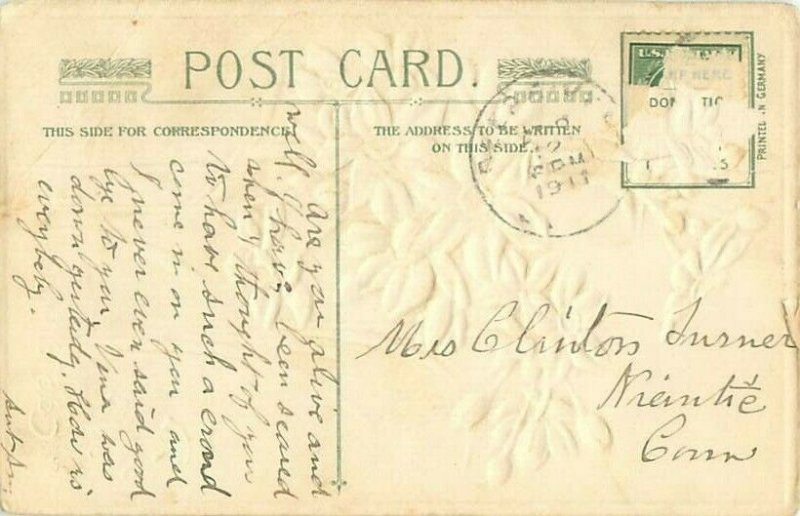 POST CARD.
THIS SIDE FOR CORRESPONDENCE
THE ADDRESS TO BE WRITTEN
ON THIS SIDE.
PRINTED IN GERMANY
DOM TIC
1911
Are you alive and
well. I have been scared
when I thought of you
to have such a crowd
come in on you and
I never even said good
bye to you. Vina was
down yesterday. How is
everybody.
Mrs Clinton Turner
Niantic
Conn